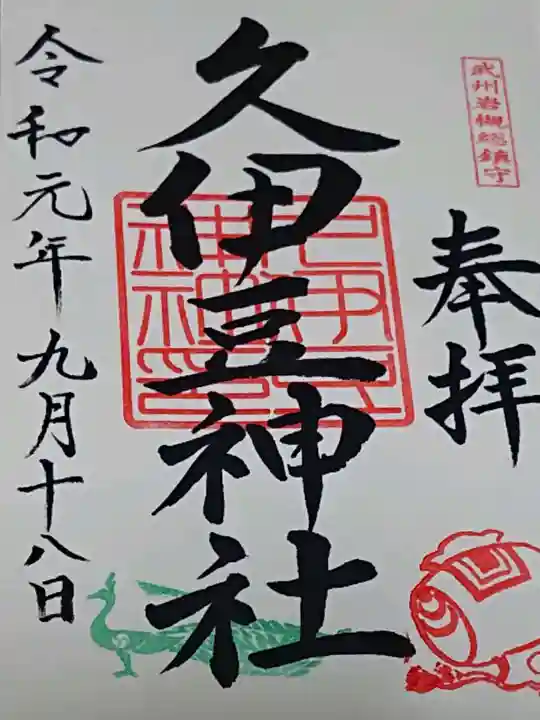 武州岩槻総鎮守
奉拝
久伊豆神社
令和元年九月十八日